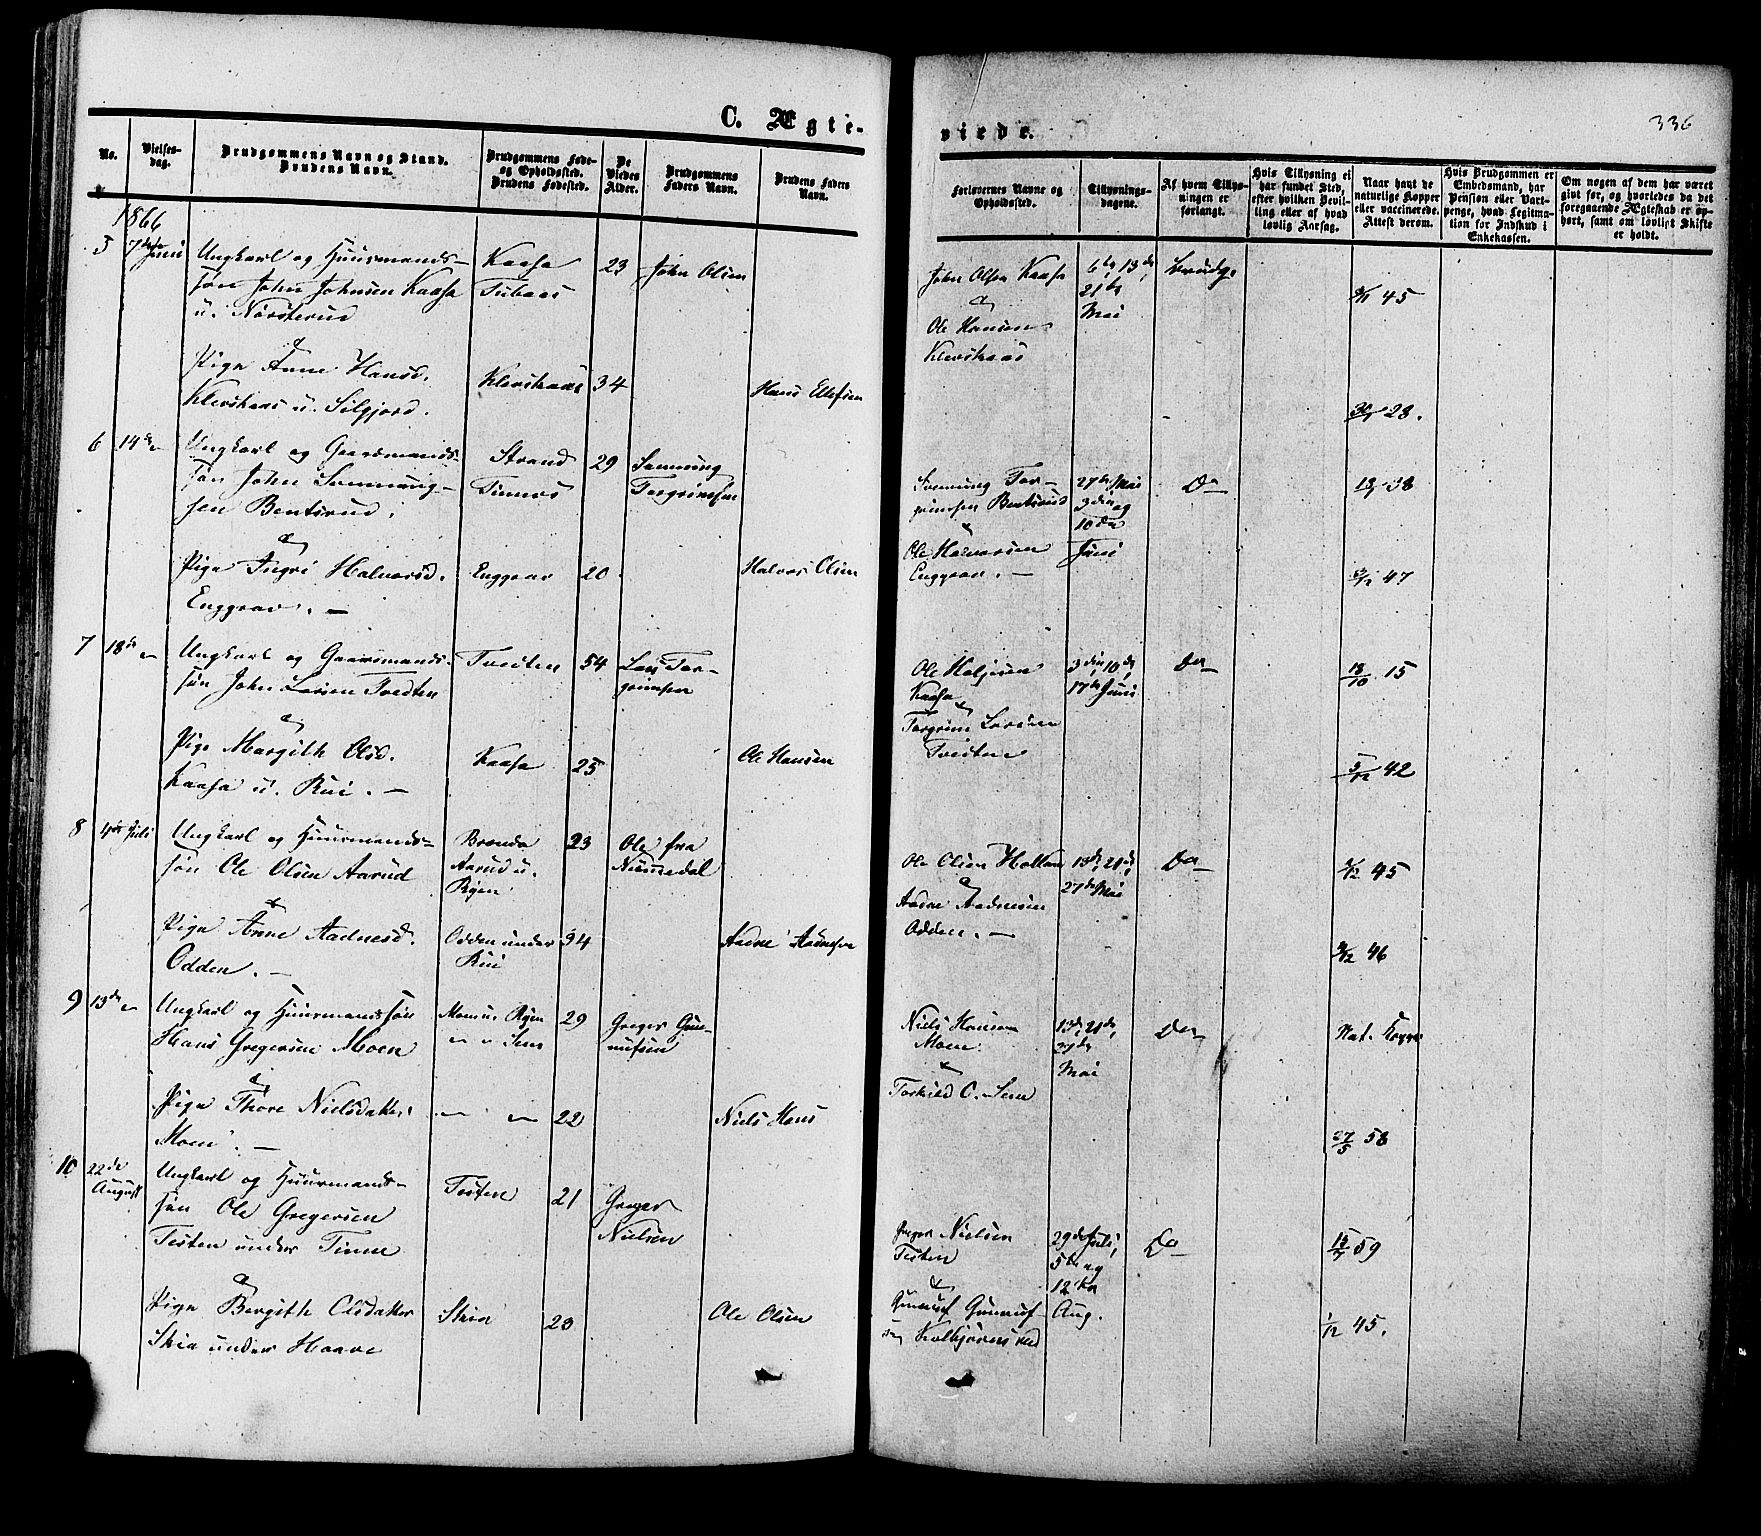 C. Ægte-
viede.
336
No.
Vielses-
dag.
Brudgommens Navn og Stand.
Brudens Navn.
Brudgommens Føde-
og Opholdssted.
Brudens Fødested.
De
Viedes
Alder.
Brudgommens
Faders Navn.
Brudens Faders
Navn.
Forlovernes Navne og
Opholdssted.
Tillysnings-
dagene.
Af hvem Tillys-
ningen er
forlangt.
Hvis Tillysning ei
har fundet Sted,
efter hvilken Bevil-
ling eller af hvad
lovlig Aarsag.
Naar havt de
naturlige Kopper
eller vaccinerede.
Attest derom.
Hvis Brudgommen er
Embedsmand, har
Pension eller Vart-
penge, hvad Legitima-
tion for Indskud i
Enkekassen.
Om nogen af dem har været
gift før, og hvorledes da det
foregaaende Ægteskab er op-
hørt, samt om lovligt Skifte
er holdt.
1866
5 7de Juni
Ungkarl og Huusmands-
søn John Johnsen Kaasa
u. Nørsterud
Kaasa
23
John Olsen
John Olsen Kaasa
&
Ole Hansen
Klevstaas
6te, 13de,
21de
Mai
Brudg.
45
Pige Anne Hansd.
Klevstaas u. Silgjord.
Klevstaas
34
Hans Ellefsen
28.
6 14de
Ungkarl og Gaardmands-
søn John Svennung-
sen Bentsrud.
Strand
Tinnes
29
Svennung
Torgrimsen
Svennung Tor-
grimsen Bentsrud
&
Ole Halvorsen
Enggrav. —
27de Mai
3die og
10de
Juni
Do
38
Pige Ingri Halvorsd.
Enggrav. —
Enggrav
20
Halvor Olsen
47
7 18de
Ungkarl og Gaardmands-
søn John Larsen Tveiten
Tveiten
54
Lars Tor-
grimsen
Kaasa
&
Torgrim Larsen
Tveiten
3die, 10de,
17de Juni
Do
13/10 15
Pige Margith Olsd.
Kaasa u. Rui. —
Kaasa
25
Ole Hansen
5/12 42
8 4de Juli
Ungkarl og Huusmands-
søn Ole Olsen Aarud
Aarud u.
Ryen
23
Ole fra
Nummedal
Ole Olsen
&
Aadne Aadnesen
Odden. —
13de, 21de,
27de Mai
Do
45
Pige Anne Aadnesd.
Odden. —
Odden under
Rui
34
Aadne Aadnesen
46
9 13de
Ungkarl og Huusmandssøn
Hans Gregersen Moen
Moen u. Ryen
29
Greger Gun-
nufsen
Niels Hansen
Moen
&
Torkild O. Sem
13de, 21de,
27de
Mai
Do
Nat. Kopper
Pige Thore Nielsdatter
Moen. —
22
Niels Hans
27/5 58
10 22de
August
Ungkarl og Huusmands-
søn Ole Gregersen
Teksten under Tinne
21
Greger
Nielsen
Greger Nielsen
&
Gunnuf Gunnuf-
sen Kolbjørnsrud
29de Juli,
5te og
12te
Aug.
Do
59
Pige Bergith Olsdatter
Skia under Haave
Skia
23
Ole Olsen
1/12 45.